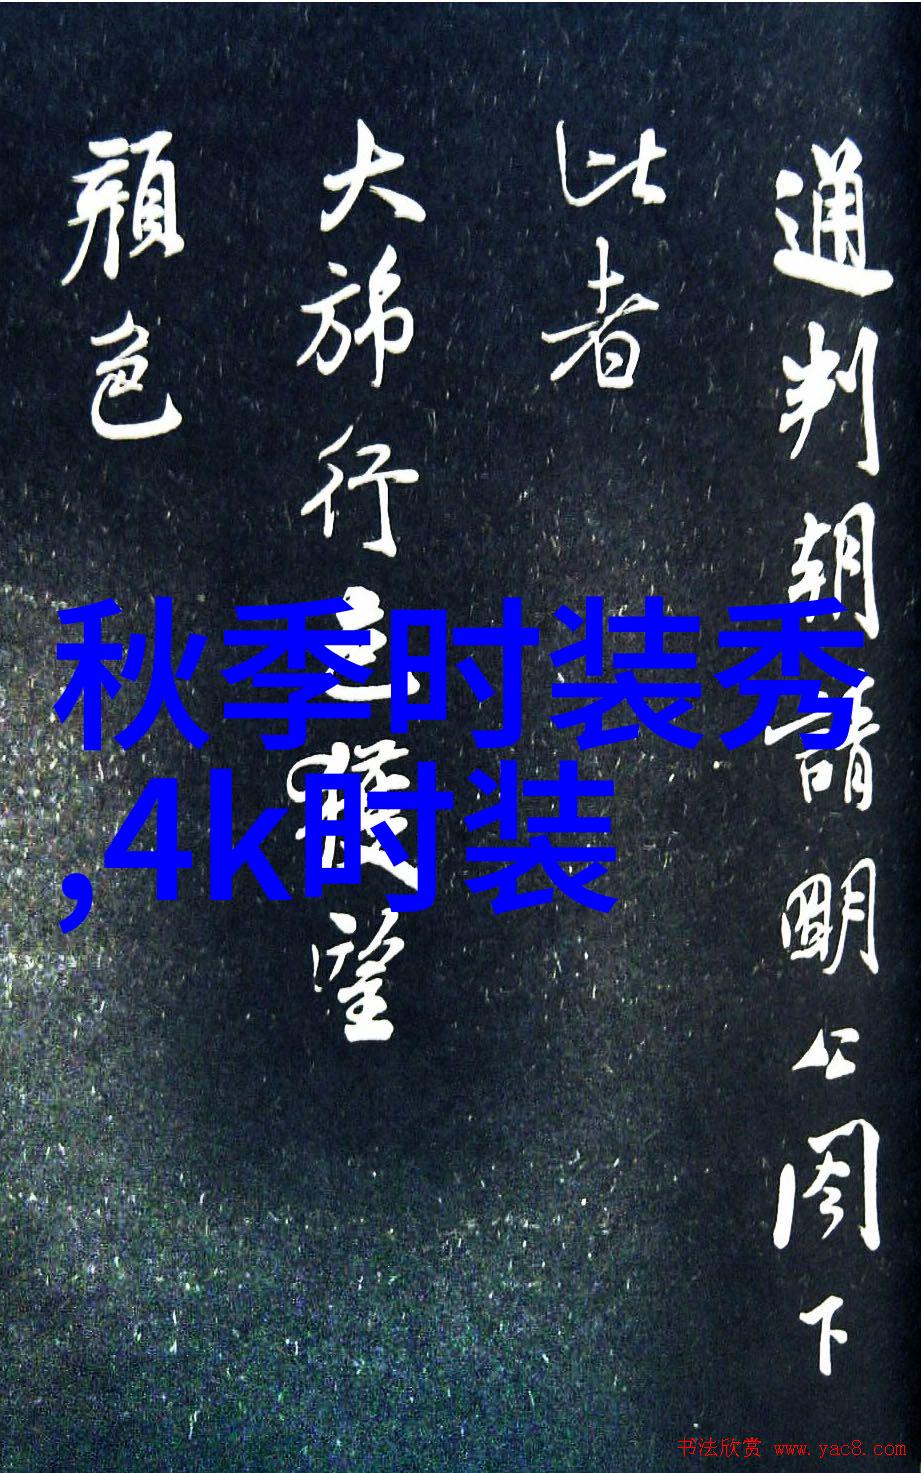 通判朝請明公閤下
此者
大旆行之獲望
顏色
秋季时装秀
,4k时装
书法欣赏 www.yac8.com